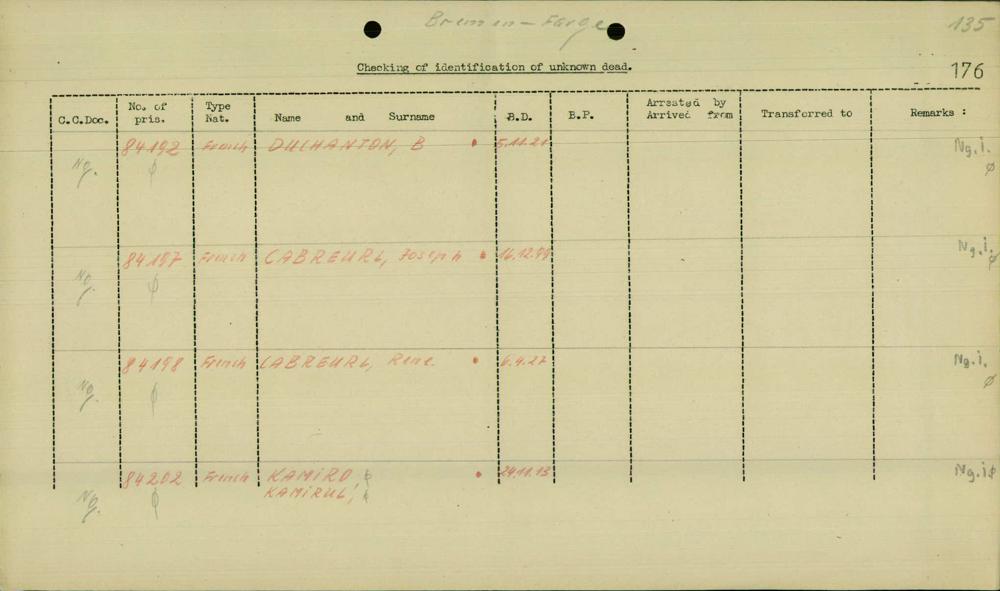 Bremen-Farge
135
Checking of identification of unknown dead.
176
C.C.Doc. No. of pris. Type Nat. Name and Surname B.D. B.P. Arrested by Arrived from Transferred to Remarks :
84192 French DUCHANTON, B 5.11.21 Ng.i.
Ng. ϕ ϕ
84197 French CABREURL, Joseph 16.12.99 Ng.i.
Ng. ϕ ϕ
84198 French CABREURL, Rene. 6.4.27 Ng.i.
Ng. ϕ ϕ
84202 French KAMIRO ϕ 24.11.13 Ng.i ϕ
Ng. ϕ KAMIRUL, ϕ